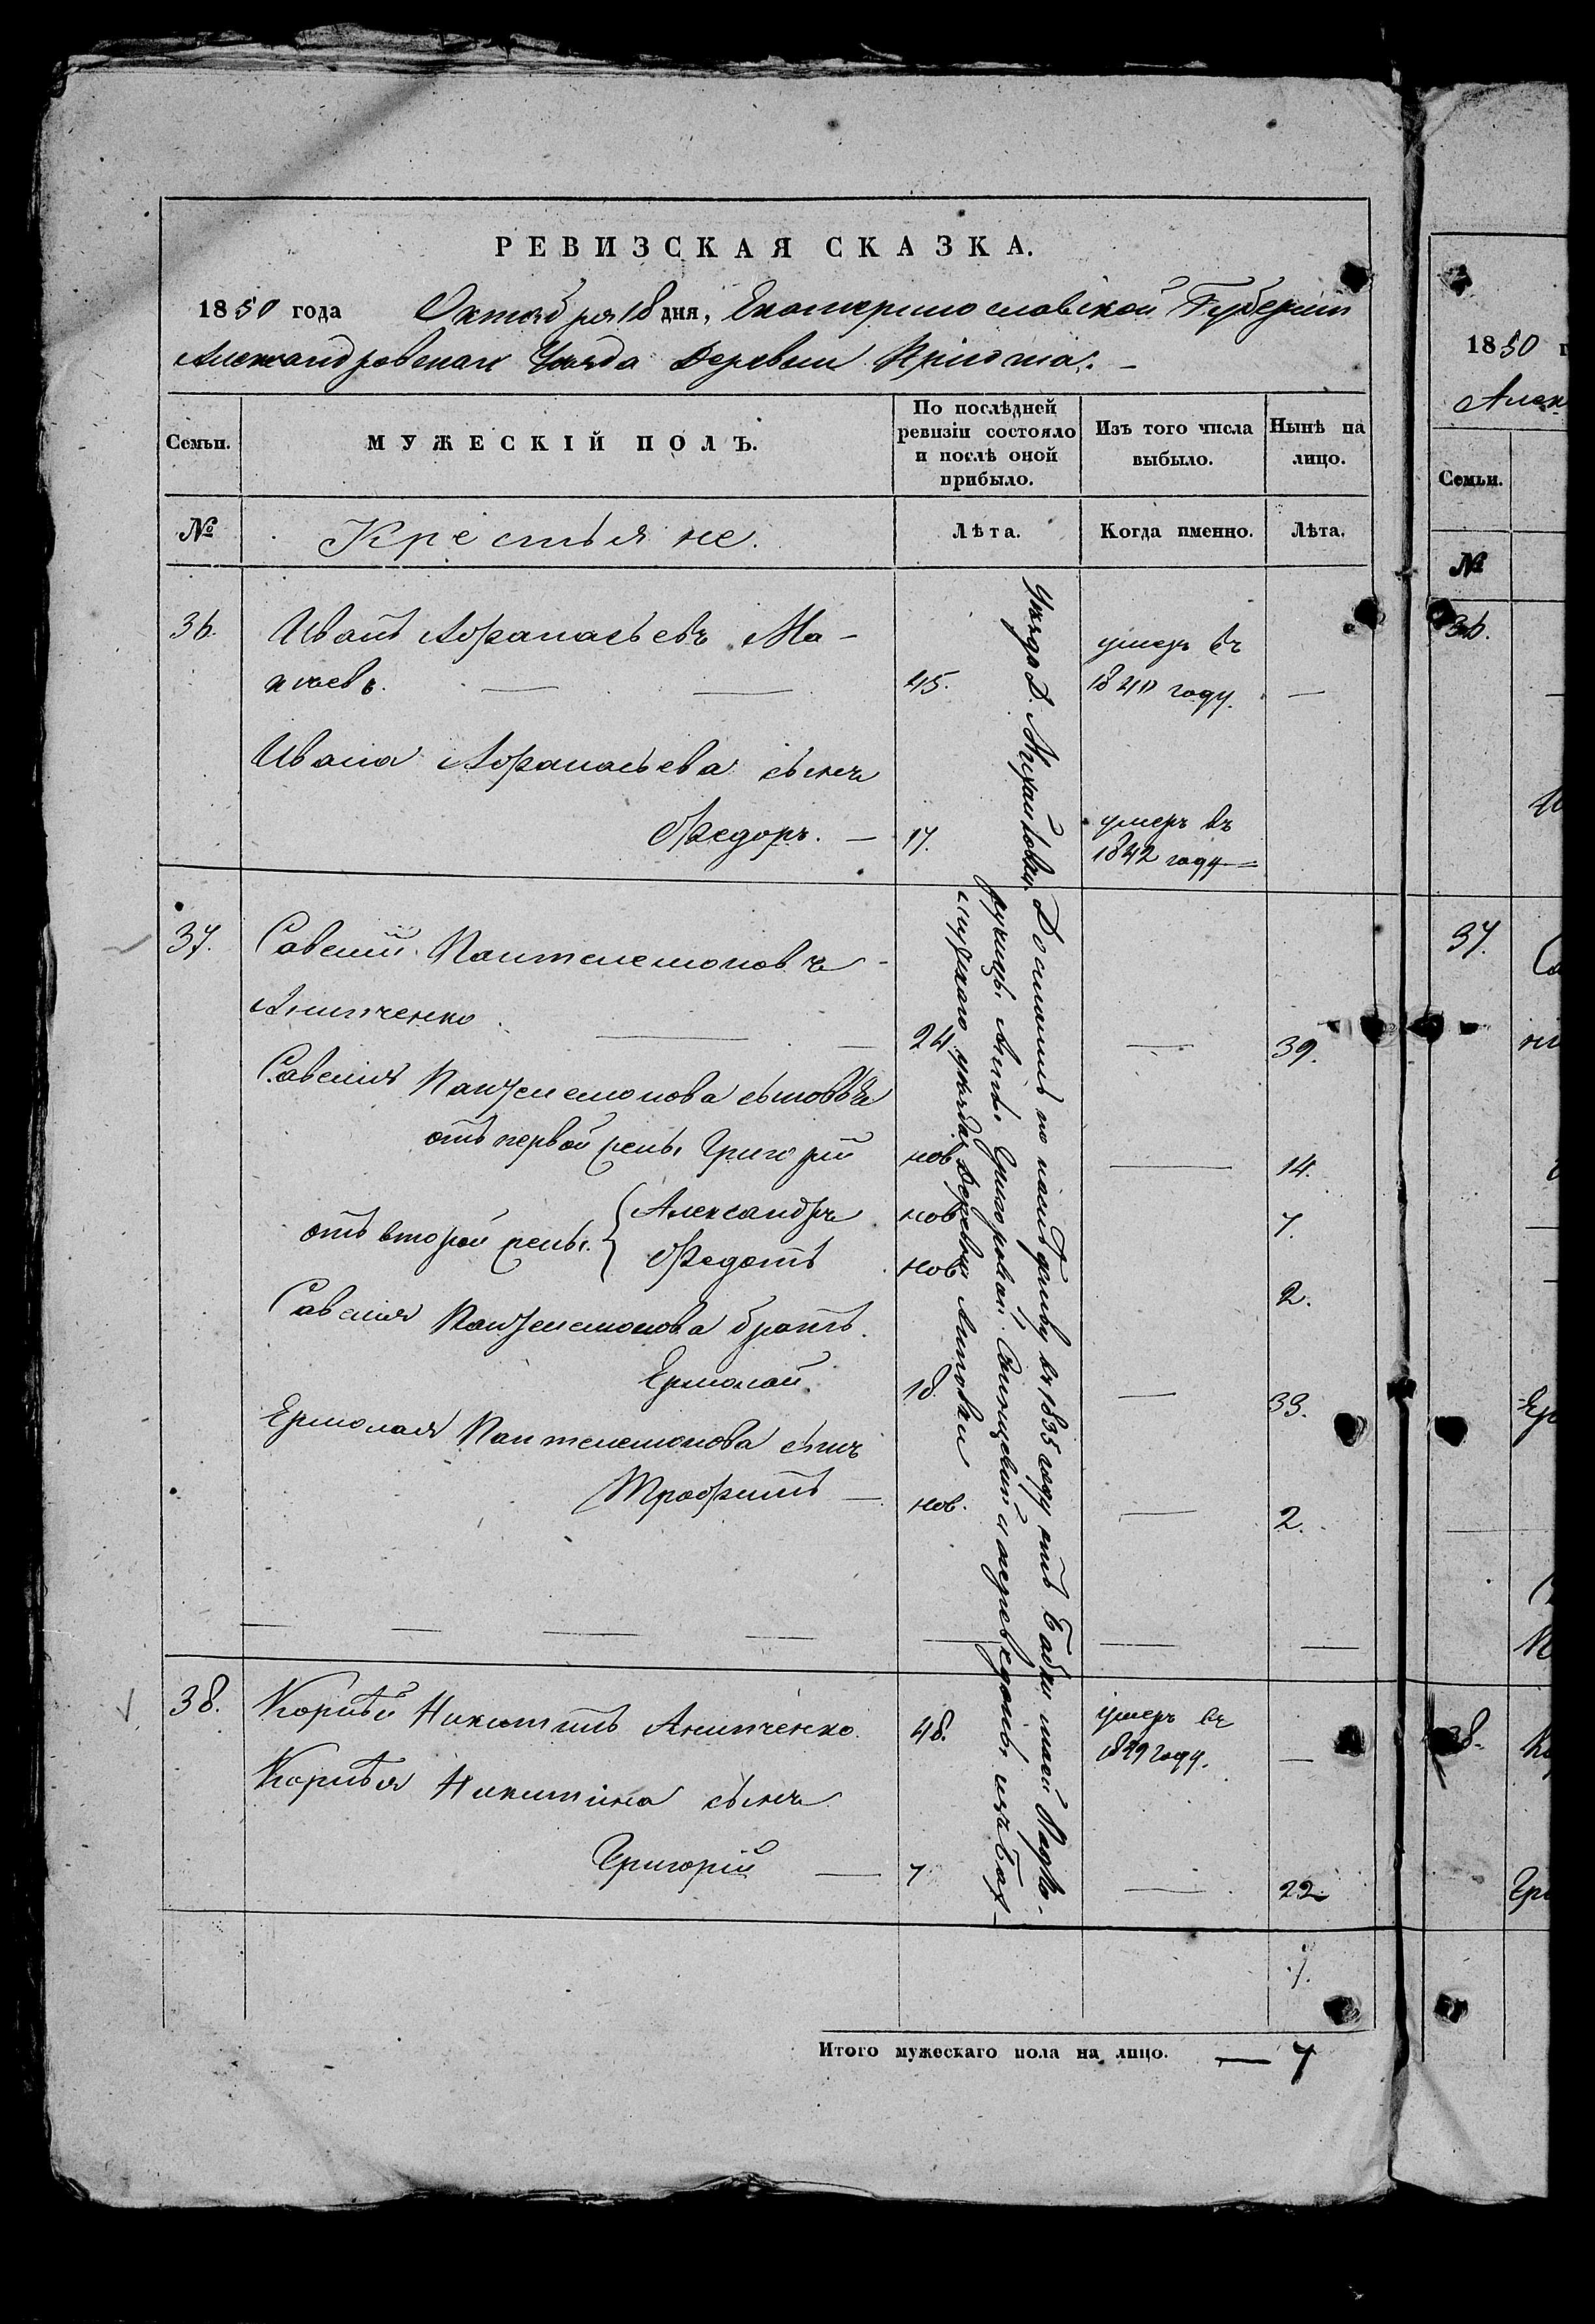 РЕВИЗСКАЯ СКАЗКА.
1850 года Октября 18 дня, Екатеринославской Губернии
Александровскаго Уезда Деревни
Семьи.
МУЖЕСКІЙ ПОЛЪ.
По послѣдней ревизіи состояло и послѣ оной прибыло.
Изъ того числа выбыло.
Нынѣ на лицо.
№
Крестьяне.
Лѣта.
Когда именно.
Лѣта.
36. Иванъ Афанасьевъ
45. умеръ въ
1840 году. —
Ивана Афанасьева сынъ
Федоръ. — 17. умеръ въ
1842 году
37. Савелій Пантелемоновъ
Анипченко. 24 — 39.
Савелія Пантелемонова сыновья
отъ первой жены Григорій нов. — 14.
отъ второй жены { Александръ нов. 7.
Федотъ нов. 2.
Савелія Пантелемонова братъ.
Ермолай. 18. — 33.
Ермолая Пантелемонова сынъ
Трофимъ — нов. — 2.
38. Корнѣй Никитинъ Анипченко. 48. умеръ въ
1849 году. —
Корнѣя Никитина сынъ
Григорій — 7 — 22
7.
Итого мужескаго пола на лицо. — 7
уѣзда Деревни
Достались по наслѣдству въ 1835 году отъ Бабки моей
Анны Григоровой и переведены изъ Бах-
мутскаго уѣзда Деревни
1850
Алек
Семьи.
№
36.
37.
38.